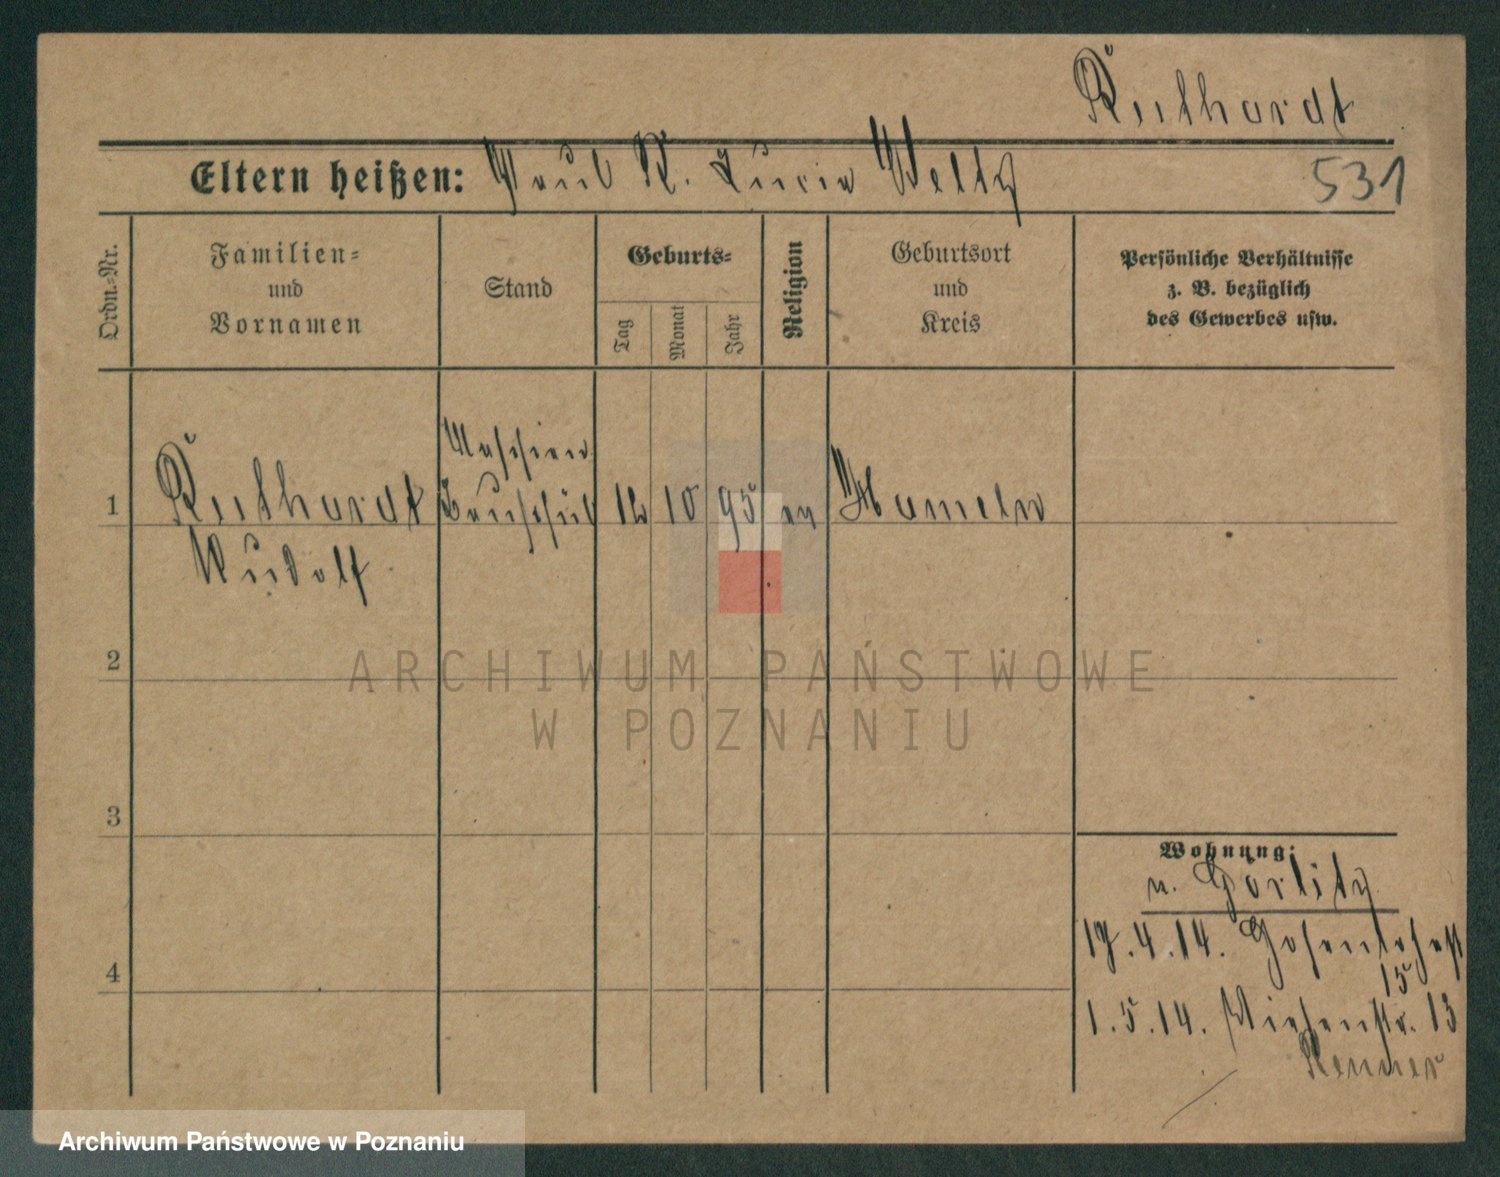 Ruthardt
Eltern heißen: Paul R. Lucie Weltz
531
Ordn.-Nr.
Familien-
und
Vornamen
Stand
Geburts-
Tag
Monat
Jahr
Religion
Geburtsort
und
Kreis
Persönliche Verhältnisse
z. B. bezüglich
des Gewerbes usw.
1 Ruthardt 12 10 95 ev Hameln
Rudolf
2
ARCHIWUM PAŃSTWOWE
W POZNANIU
3
Wohnung:
v. Görlitz
4
17.4.14.
15
1.5.14. Wiesenstr. 13
Renner
Archiwum Państwowe w Poznaniu